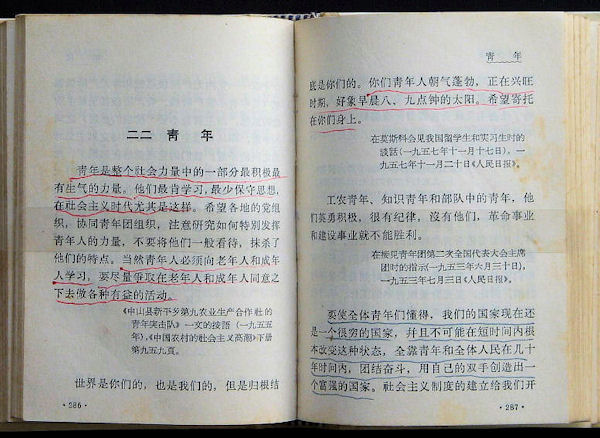 二二 青年
青年是整个社会力量中的一部分最积极最
有生气的力量。他们最肯学习，最少保守思想，
在社会主义时代尤其是这样。希望各地的党组
织，协同青年团组织，注意研究如何特别发挥
青年人的力量，不要将他们一般看待，抹杀了
他们的特点。当然青年人必须向老年人和成年
人学习，要尽量争取在老年人和成年人同意之
下去做各种有益的活动。
《中山县新平乡第九农业生产合作社的
青年突击队》一文的按語（一九五五
年），《中国农村的社会主义高潮》下册
第九五九頁。
世界是你们的，也是我们的，但是归根结
·286·
青年
底是你们的。你们青年人朝气蓬勃，正在兴旺
时期，好象早晨八、九点钟的太阳。希望寄托
在你们身上。
在莫斯科会见我国留学生和实习生时的
談話（一九五七年十一月十七日），一
九五七年十一月二十日《人民日报》。
工农青年、知识青年和部队中的青年，他
们英勇积极，很有纪律，沒有他们，革命事业
和建设事业就不能胜利。
在接見青年团第二次全国代表大会主席
团时的指示（一九五三年六月三十日），
一九五三年七月三日《人民日报》。
要使全体青年们懂得，我们的国家现在还
是一个很穷的国家，并且不可能在短时间内根
本改变这种状态，全靠青年和全体人民在几十
年时间内，团结奋斗，用自己的双手创造出一
个富强的国家。社会主义制度的建立给我们开
·287·